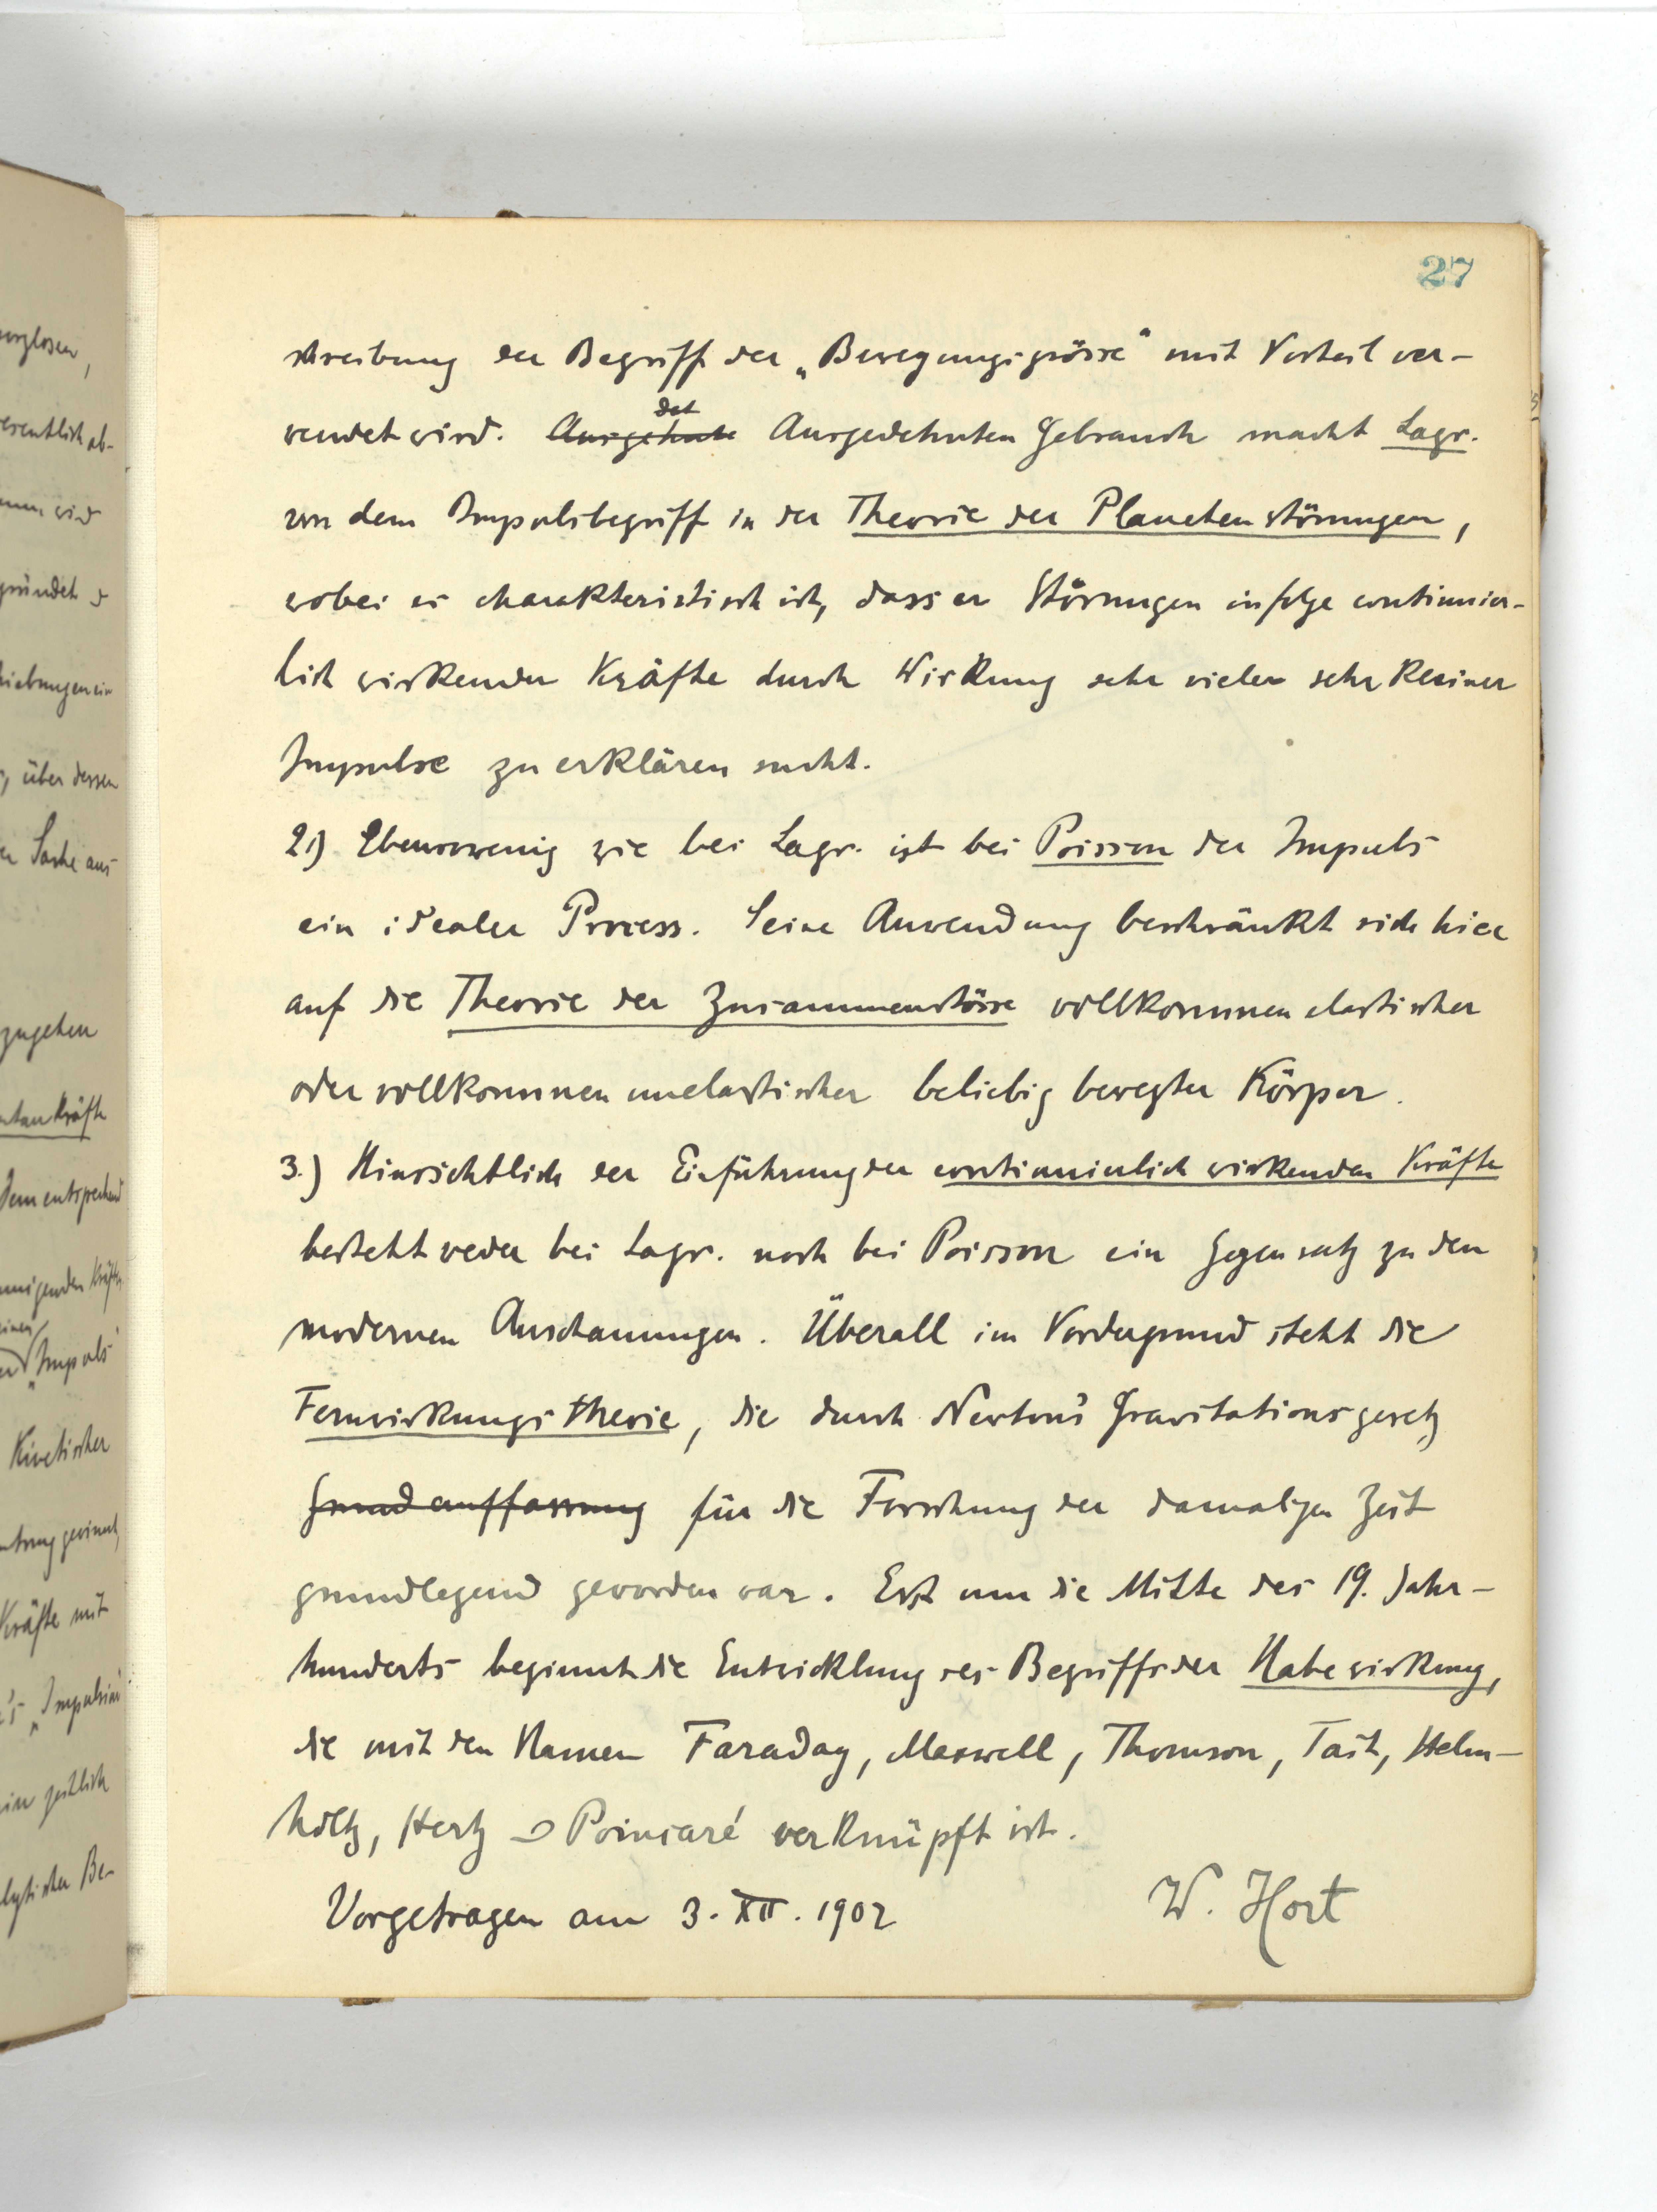 27
schreibung der Begriff der „Bewegungsgrösse“ mit Vorteil ver-
wendet wird. Ausgehnte det Ausgedehnten Gebrauch macht Lagr.
von dem Impulsbegriff in der Theorie der Planetenstörungen,
wobei es charakteristisch ist, dass er Störungen infolge continuier-
lich wirkender Kräfte durch Wirkung sehr vieler sehr kleiner
Impulse zu erklären sucht.
2.) Ebensowenig wie bei Lagr. ist bei Poisson der Impuls
ein idealer Process. Seine Anwendung beschränkt sich hier
auf die Theorie der Zusammenstösse vollkommen elastischer
oder vollkommen unelastischer beliebig bewegter Körper.
3.) Hinsichtlich der Einführung der continuierlich wirkenden Kräfte
besteht weder bei Lagr. noch bei Poisson ein Gegensatz zu den
modernen Anschauungen. Überall im Vordergrund steht die
Fernwirkungstheorie, die durch Newton's Gravitationsgesetz
Grundauffassung für die Forschung der damaligen Zeit
grundlegend geworden war. Erst um die Mitte des 19. Jahr-
hunderts beginnt die Entwicklung des Begriffs der Nahewirkung,
die mit den Namen Faraday, Maxwell, Thomson, Tait, Helm-
holtz, Hertz & Poincaré verknüpft ist.
Vorgetragen am 3. XII. 1902
W. Hort